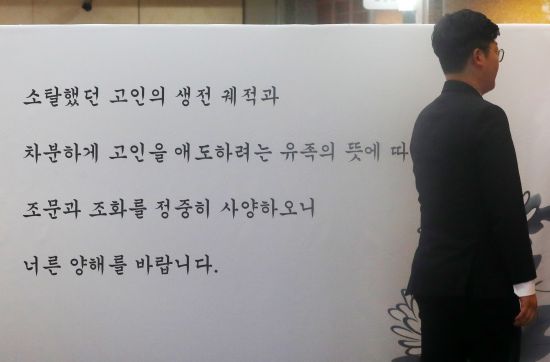 소탈했던 고인의 생전 궤적과
차분하게 고인을 애도하려는 유족의 뜻에 따
조문과 조화를 정중히 사양하오니
너른 양해를 바랍니다.